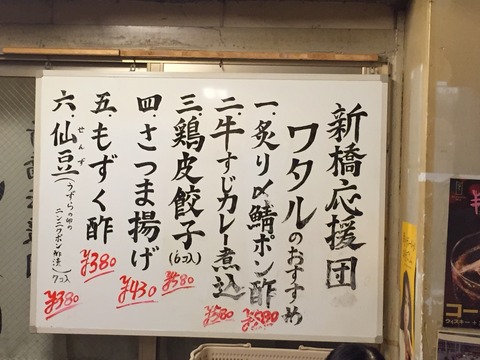 新橋応援団
ワタルのおすすめ
一.炙り〆鯖ポン酢 ¥580
二.牛すじカレー煮込 ¥580
三.鶏皮餃子(6コ入) ¥580
四.さつま揚げ ¥430
五.もずく酢 ¥380
六.仙豆(うずらの卵のニンニクポン酢漬)7コ入 ¥380
せんず
コー
ウィスキー+